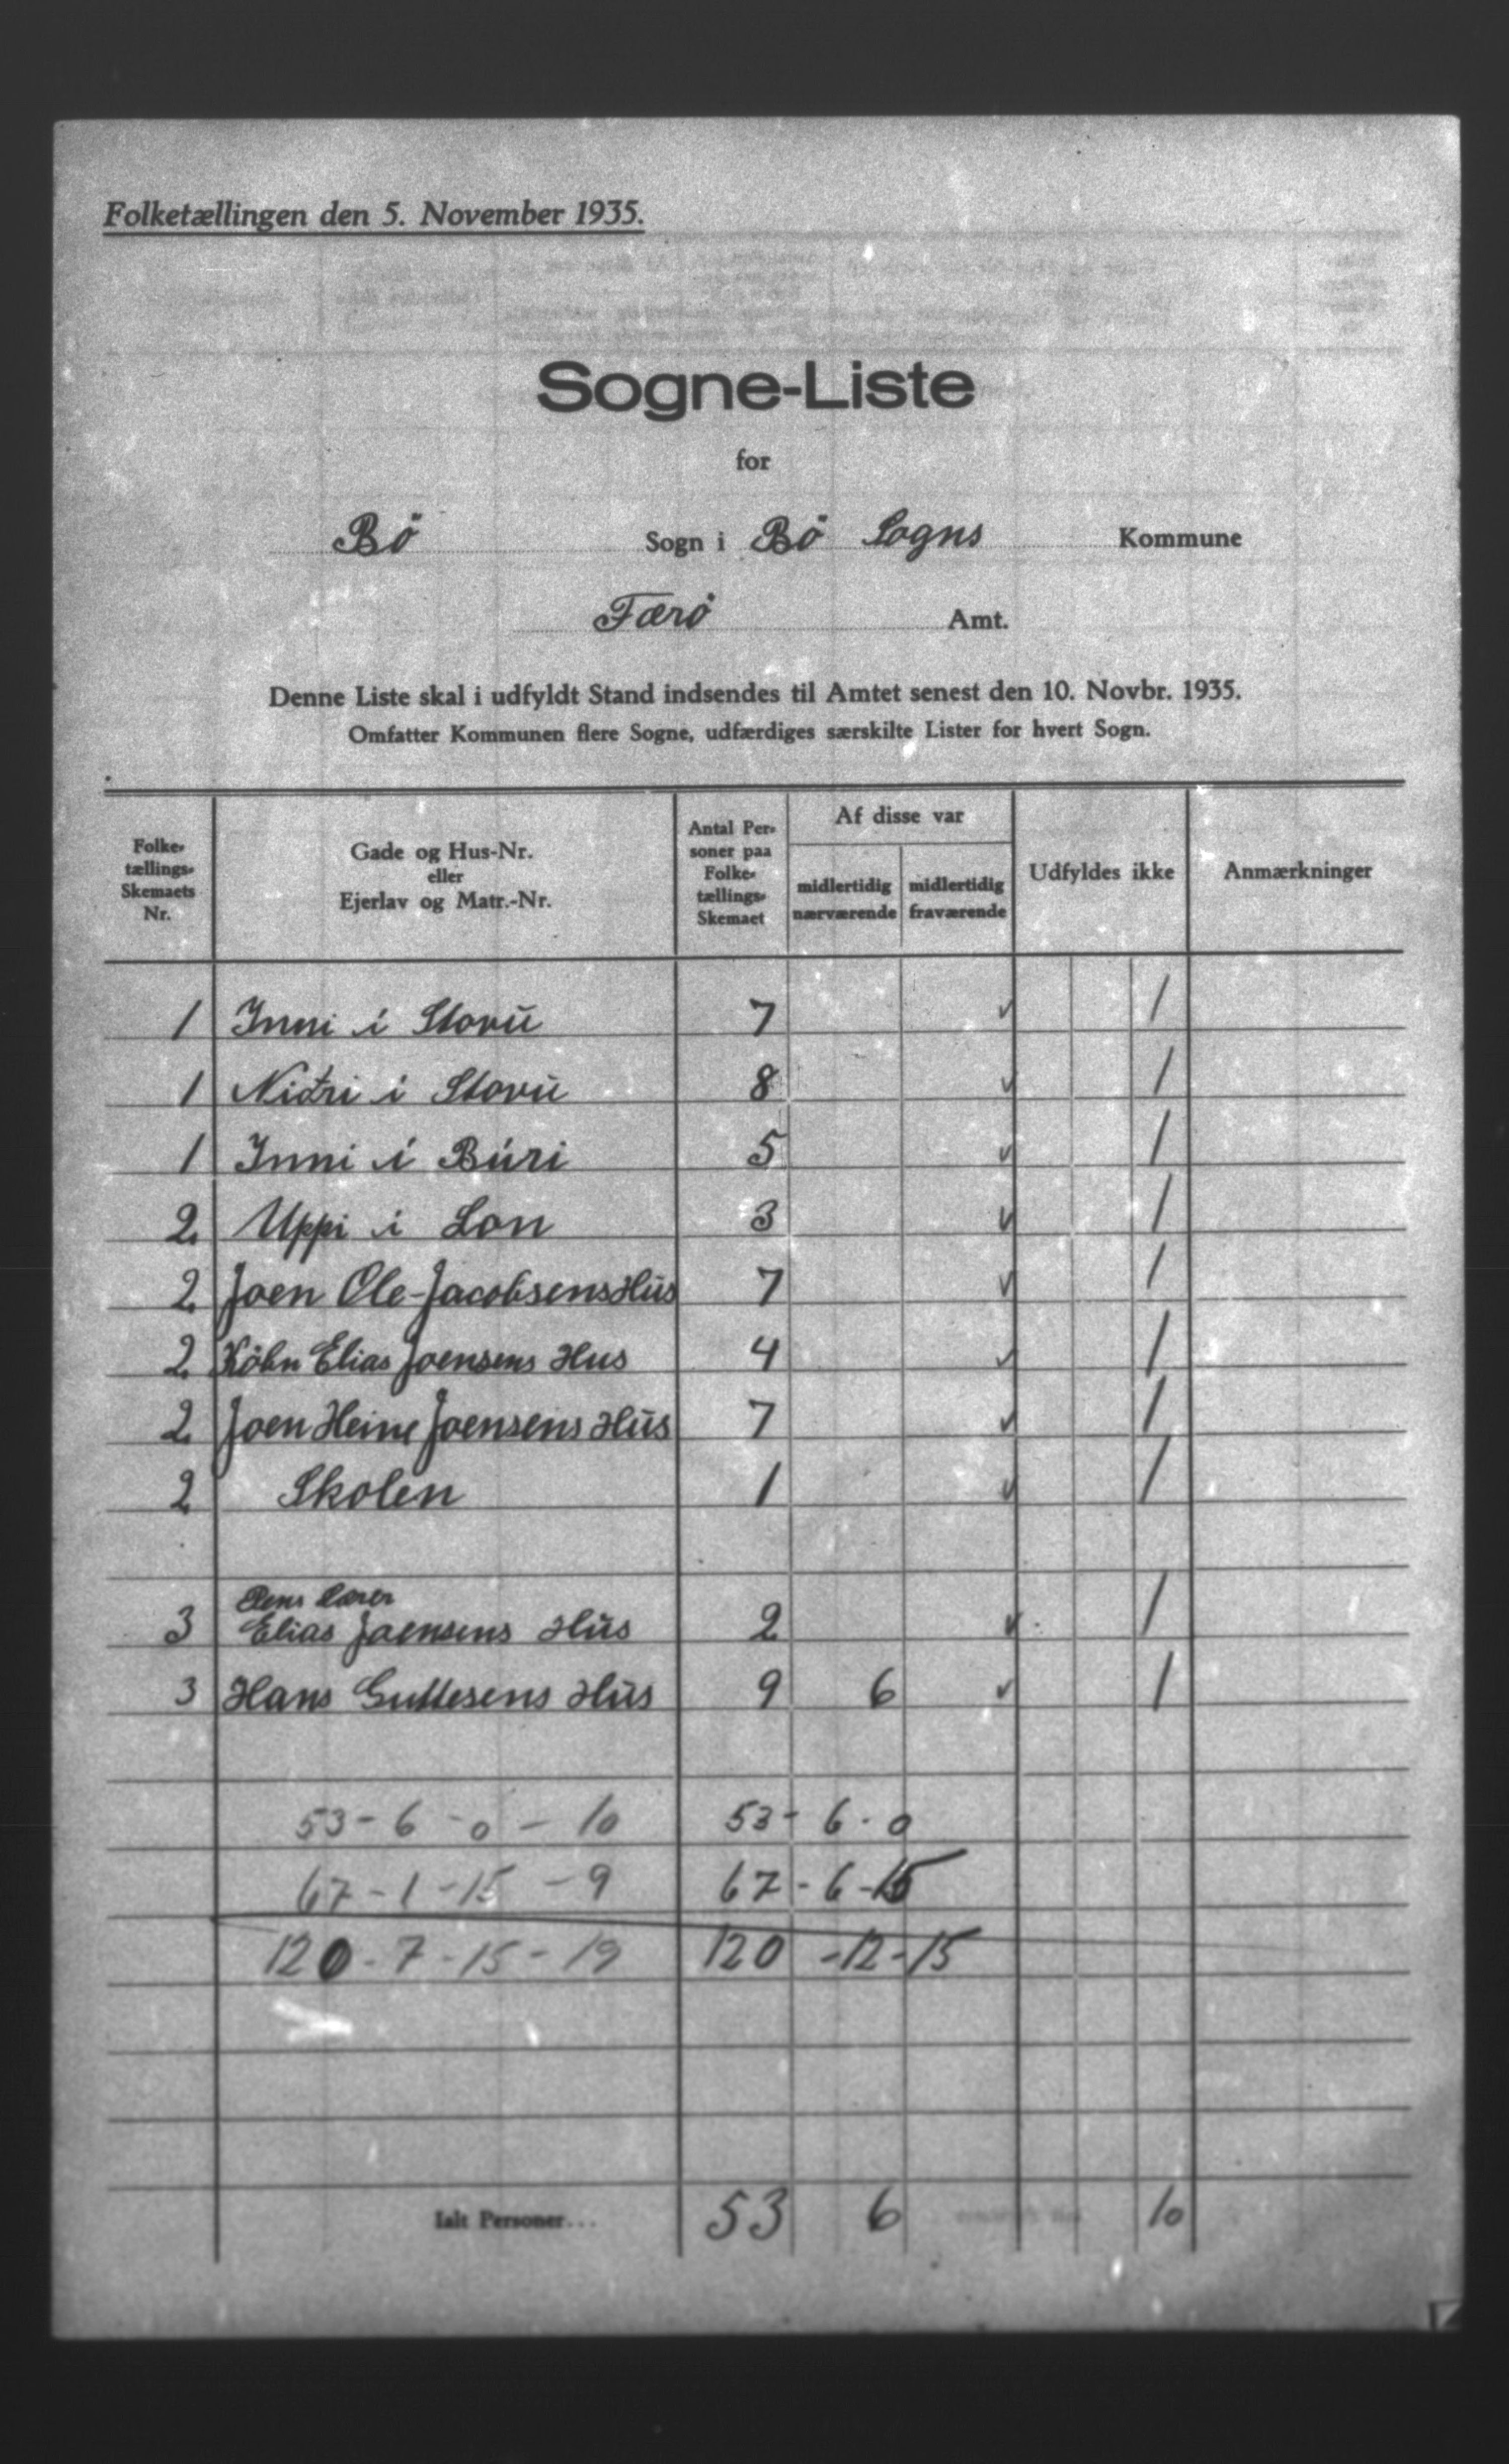 Folketællingen den 5. November 1935.
Sogne-Liste
for
Bö Sogn i Bö Sogns Kommune
Færö Amt.
Denne Liste skal i udfyldt Stand indsendes til Amtet senest den 10. Novbr. 1935.
Omfatter Kommunen flere Sogne, udfærdiges særskilte Lister for hvert Sogn.
Folke-
tællings-
Skemaets
Nr.
Gade og Hus-Nr.
eller
Ejerlav og Matr.-Nr.
Antal Per-
soner paa
Folke-
tællings-
Skemaet
Af disse var
midlertidig
nærværende
midlertidig
fraværende
Udfyldes ikke
Anmærkninger
1 Inni i Stovu 7 ✓ 1
1 Niðri i Stovu 8 ✓ 1
1 Inni i Búri 5 ✓ 1
2 Uppi i Lon 3 ✓ 1
2 Joen Ole-Jacobsens Hus 7 ✓ 1
2 Elias Joensens Hus 4 ✓ 1
2 Joen Heine Joensens Hus 7 ✓ 1
2 Skolen 1 ✓ 1
Lærer
3 Elias Joensens Hus 2 ✓ 1
3 Hans Guttesens Hus 9 6 ✓ 1
53 - 6 - 0 - 10 53 - 6 - 0
67 - 1 - 15 - 9 67 - 6 - 15
120 - 7 - 15 - 19 120 - 12 - 15
Ialt Personer... 53 6 10